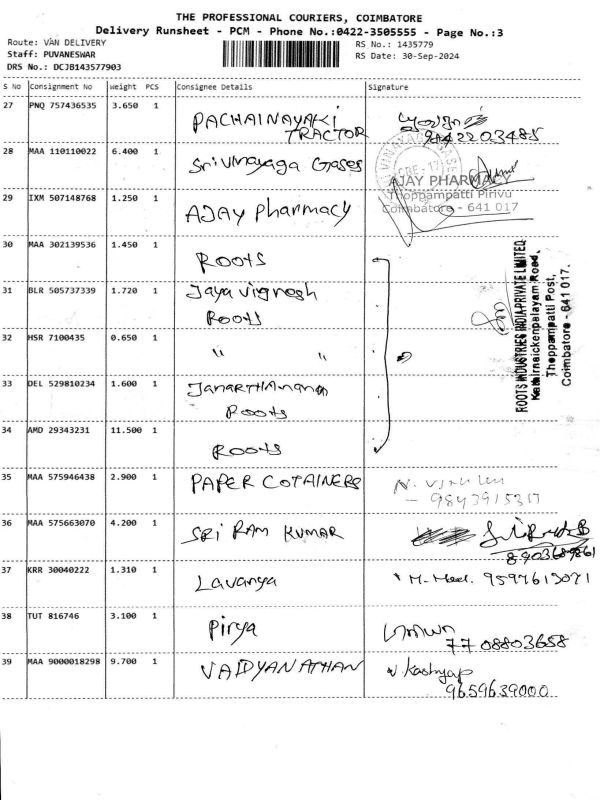 THE PROFESSIONAL COURIERS, COIMBATORE
Delivery Runsheet - PCM - Phone No.:0422-3505555 - Page No.:3
Route: VAN DELIVERY
Staff: PUVANESWAR
DRS No.: DCJB143577903
RS No.: 1435779
RS Date: 30-Sep-2024
S No Consignment No Weight PCS Consignee Details Signature
27 PNQ 757436535 3.650 1 PACHAINAYAKI
TRACTOR 9842203485
28 MAA 110110022 6.400 1 Sri Vinayaga Gases
29 IXM 507148768 1.250 1 AJAY Pharmacy
AJAY PHARMACY
Thoppampatti Pirivu
Coimbatore - 641 017
30 MAA 302139536 1.450 1 ROOTS
31 BLR 505737339 1.720 1 Jaya vignesh
Roots
32 HSR 7100435 0.650 1 " "
33 DEL 529810234 1.600 1 JanarTHanan
Roots
34 AMD 29343231 11.500 1 ROOTS
ROOTS INDUSTRIES INDIA PRIVATE LIMITED,
Kathirnaickenpalayam Road,
Thoppampatti Post,
Coimbatore - 641 017.
35 MAA 575946438 2.900 1 PAPER COTAINERS
- 9843915317
36 MAA 575663070 4.200 1 SRI RAM KUMAR
8903689861
37 KRR 30040222 1.310 1 Lavanya 9597615071
38 TUT 816746 3.100 1 Pirya
7708803658
39 MAA 9000018298 9.700 1 VAIDYANATHAN V. Kashyap
9659639000